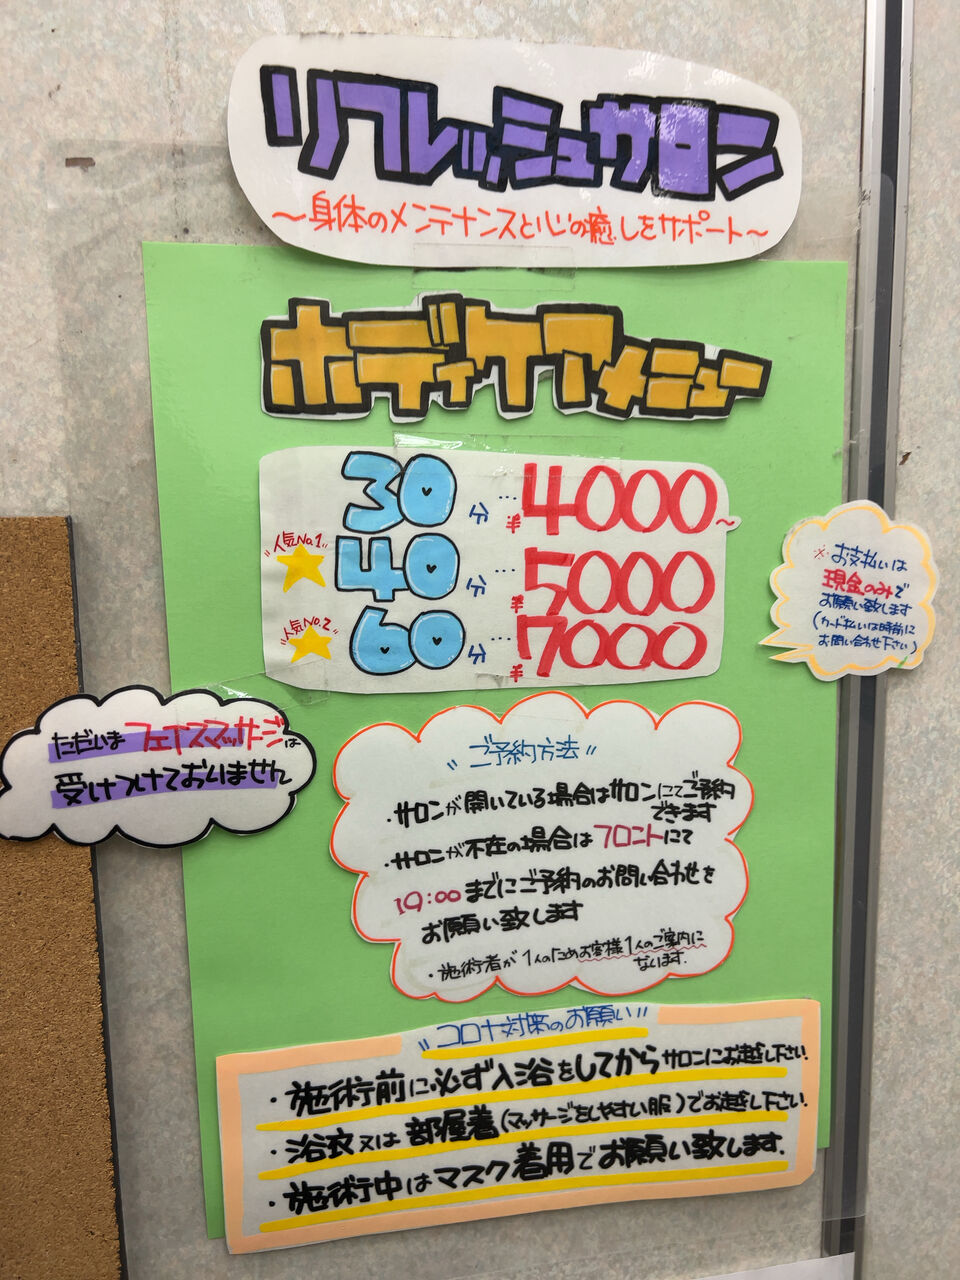 リフレッシュサロン
～身体のメンテナンスと心の癒しをサポート～
ボディケアメニュー
30分…¥4000～
"人気No.1" 40分…¥5000
"人気No.2" 60分…¥7000
※お支払いは
現金のみで
お願い致します
(カード払いは時前に
お問い合わせ下さい)
ただいまフェイスマッサージは
受けつけておりません
"ご予約方法"
・サロンが開いている場合はサロンにてご予約
できます
・サロンが不在の場合はフロントにて
19:00までにご予約のお問い合わせを
お願い致します
・施術者が1人のためお客様1人のご案内に
なります.
"コロナ対策のお願い"
・施術前に必ず入浴をしてからサロンにお越し下さい.
・浴衣又は部屋着(マッサージをしやすい服)でお越し下さい.
・施術中はマスク着用でお願い致します.